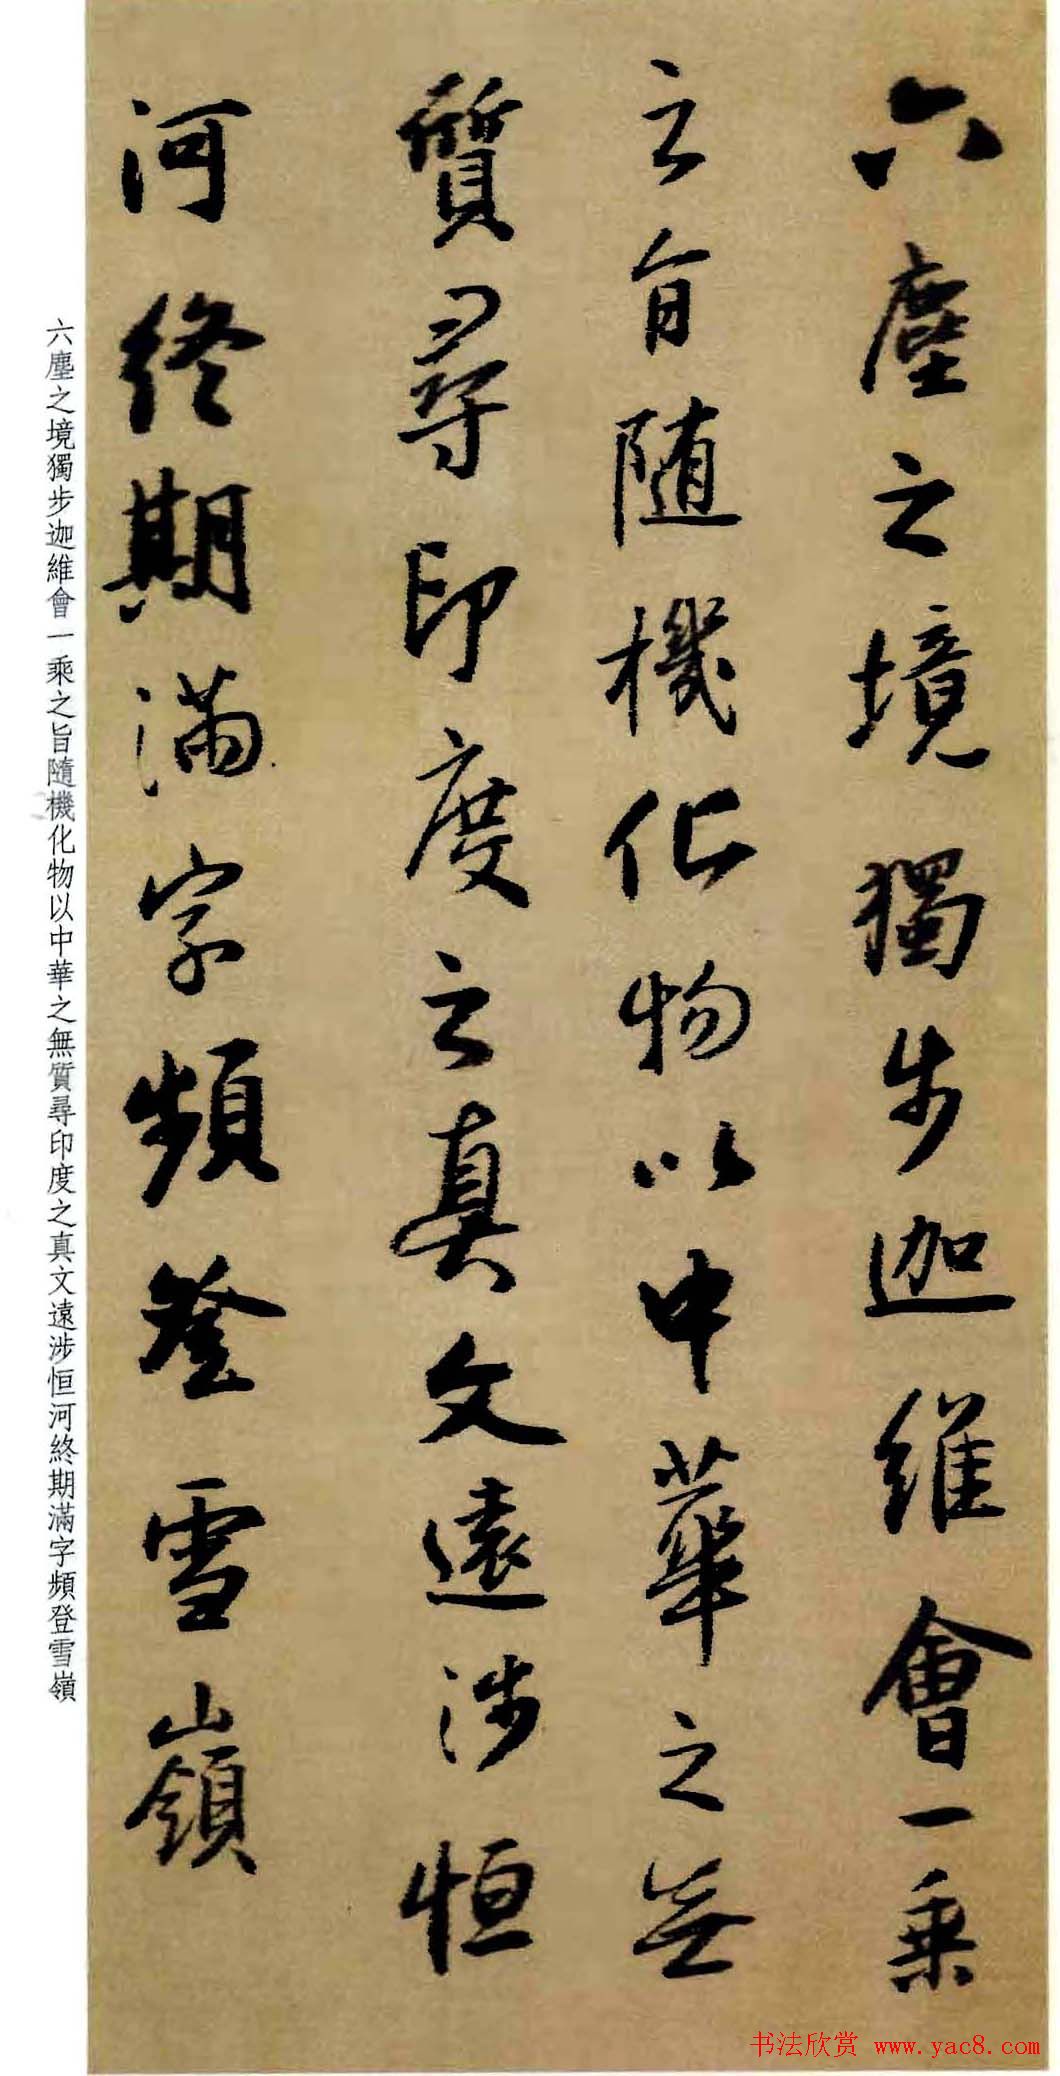 六塵之境獨步迦維會一乘
之旨随機化物以中華之無
質尋印度之真文遠涉恒
河終期滿字頻登雪嶺
六塵之境獨步迦維會一乘之旨隨機化物以中華之無質尋印度之真文遠涉恒河終期滿字頻登雪嶺
书法欣赏 www.yac8.com